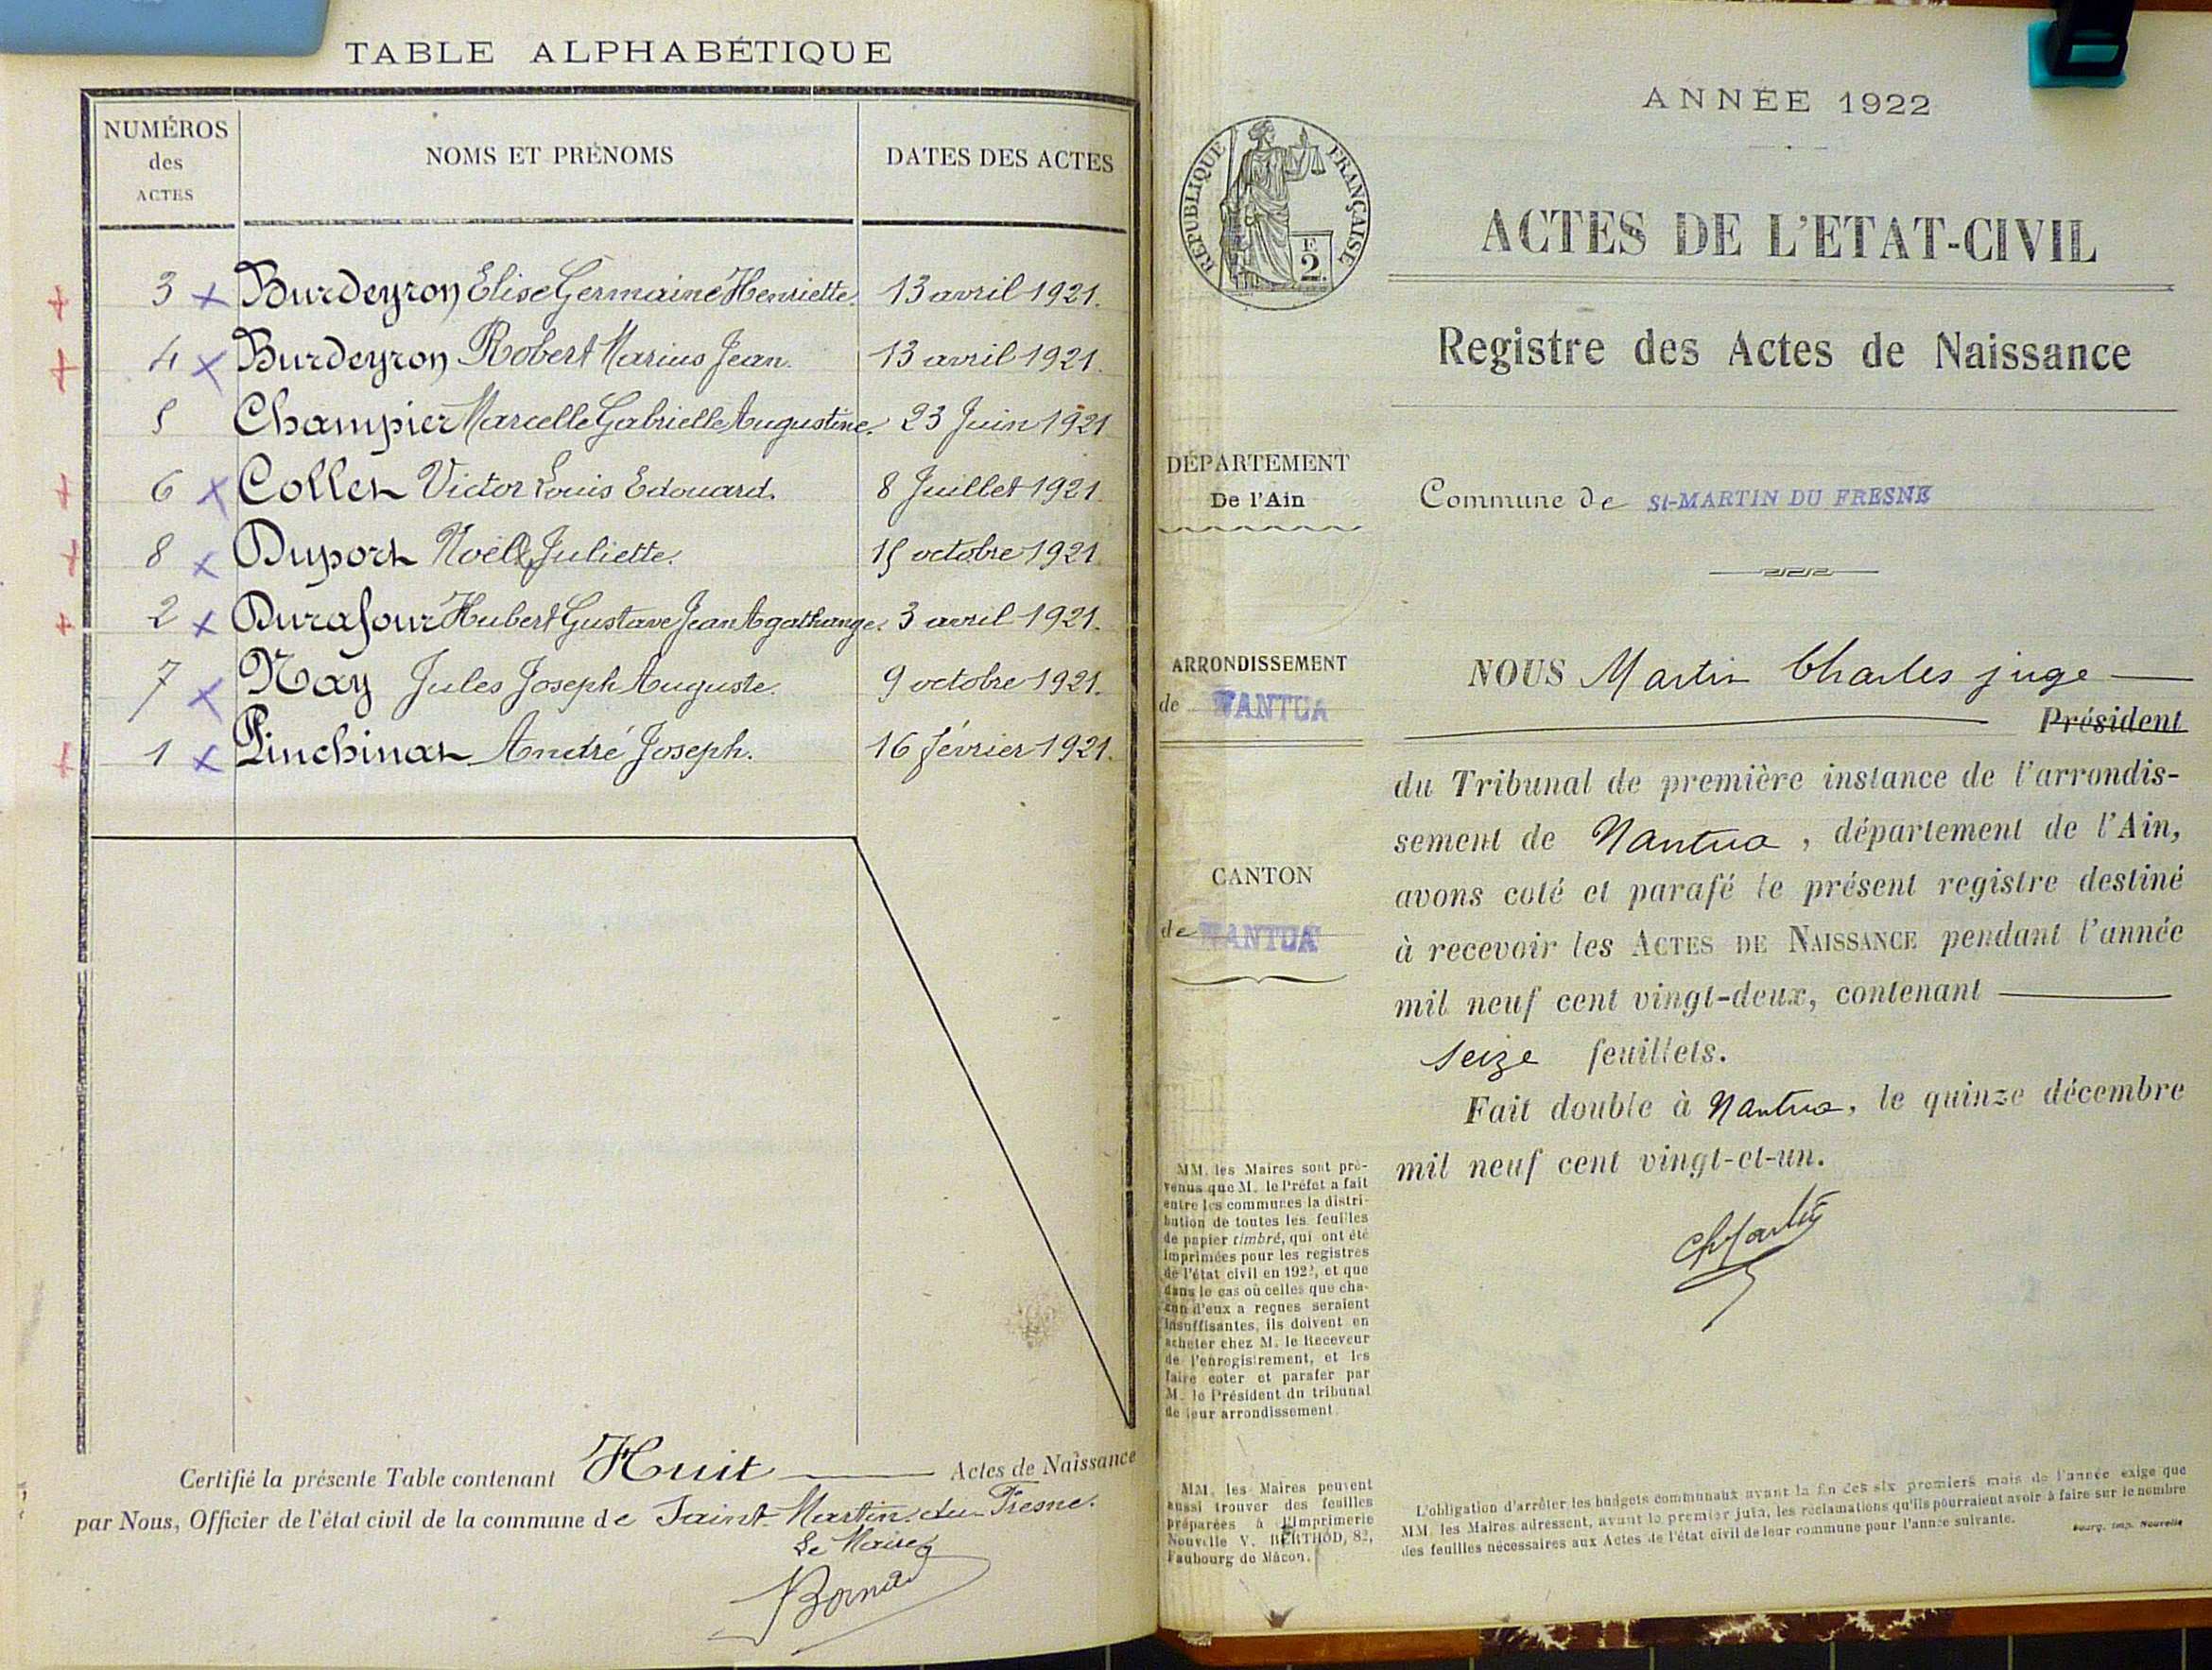 TABLE ALPHABÉTIQUE
NUMÉROS des ACTES
NOMS ET PRÉNOMS
DATES DES ACTES
3 x Burdeyron Elise Germaine Henriette. 13 avril 1921.
4 x Burdeyron Robert Marius Jean. 13 avril 1921.
5 Champier Marcelle Gabrielle Augustine. 23 Juin 1921
6 x Collet Victor Louis Edouard. 8 Juillet 1921.
8 x Duport Noëlle Juliette. 15 octobre 1921
2 x Durafour Hubert Gustave Jean Agathange. 3 avril 1921.
7 x Nay Jules Joseph Auguste. 9 octobre 1921.
1 x Pinchinat André Joseph. 16 février 1921.
Certifié la présente Table contenant Huit Actes de Naissance
par Nous, Officier de l'état civil de la commune de Saint-Martin-du-Fresne.
Le Maire
ANNÉE 1922
RÉPUBLIQUE FRANÇAISE
2
ACTES DE L'ETAT-CIVIL
Registre des Actes de Naissance
DÉPARTEMENT
De l'Ain
Commune de St-MARTIN DU FRESNE
ARRONDISSEMENT
de NANTUA
CANTON
de NANTUA
NOUS Martin Charles juge
Président
du Tribunal de première instance de l'arrondis-
sement de Nantua, département de l'Ain,
avons coté et parafé le présent registre destiné
à recevoir les ACTES DE NAISSANCE pendant l'année
mil neuf cent vingt-deux, contenant
seize feuillets.
Fait double à Nantua, le quinze décembre
mil neuf cent vingt-et-un.
Ch Martin
MM. les Maires sont pré-
venus que M. le Préfet a fait
entre les communes la distri-
bution de toutes les feuilles
de papier timbré, qui ont été
imprimées pour les registres
de l'état civil en 1922, et que
dans le cas où celles que cha-
cun d'eux a reçues seraient
insuffisantes, ils doivent en
acheter chez M. le Receveur
de l'enregistrement, et les
faire coter et parafer par
M. le Président du tribunal
de leur arrondissement.
MM. les Maires peuvent
aussi trouver des feuilles
préparées à l'Imprimerie
Nouvelle V. BERTHOD, 82,
Faubourg de Mâcon.
L'obligation d'arrêter les budgets communaux avant la fin des six premiers mois de l'année exige que
MM. les Maires adressent, avant le premier juin, les réclamations qu'ils pourraient avoir à faire sur le nombre
des feuilles nécessaires aux Actes de l'état civil de leur commune pour l'année suivante.
Bourg. Imp. Nouvelle